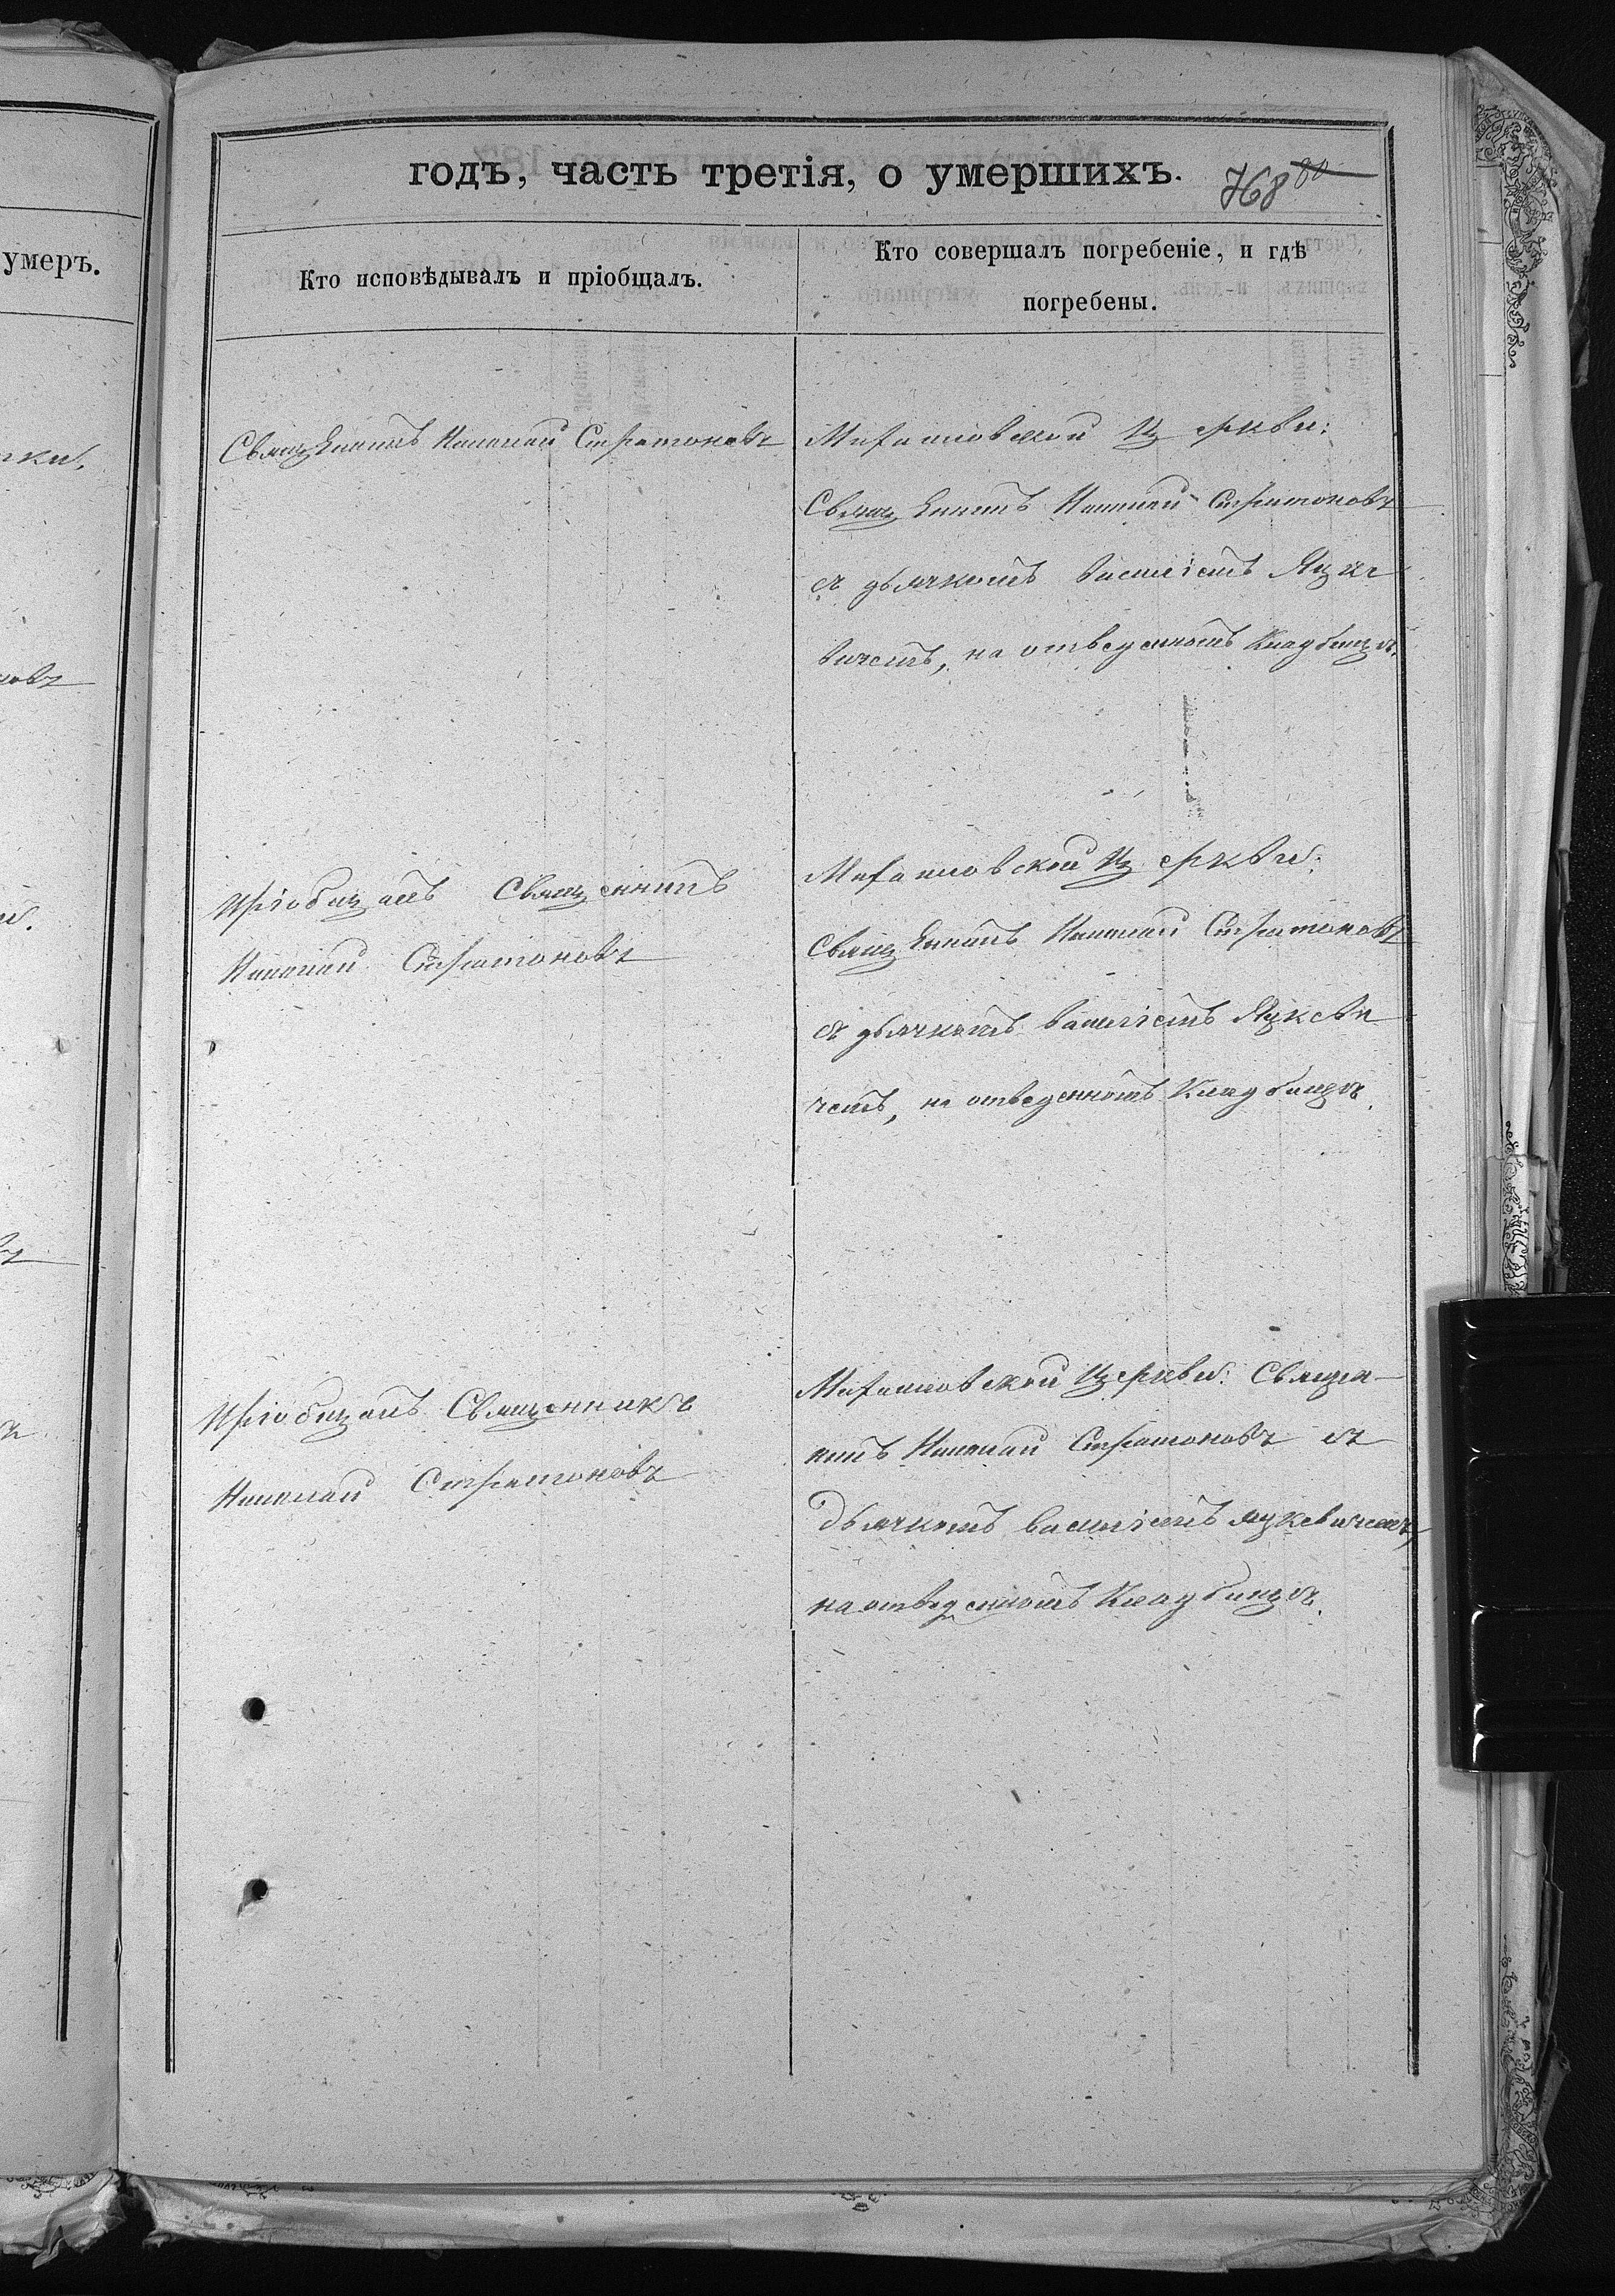 годъ, часть третія, о умершихъ.
768 80
умеръ.
Кто исповѣдывалъ и пріобщалъ.
Кто совершалъ погребеніе, и гдѣ
погребены.
Священникъ Николай Стратоновъ
церкви:
Священникъ Николай Стратоновъ
съ дьячкомъ Василіемъ Яцке
вичемъ, на отведенномъ кладбищѣ.
Пріобщалъ Священникъ
Николай Стратоновъ
церкви:
Священникъ Николай Стратоновъ
съ дьячкомъ Василіемъ Яцкеви
чемъ, на отведенномъ Кладбищѣ.
Пріобщалъ Священникъ
Николай Стратоновъ
церкви: Священ-
никъ Николай Стратоновъ съ
Дьячкомъ Василіемъ Яцкевичемъ,
на отведенномъ Кладбищѣ.